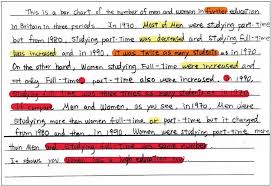 This is a bar chart of the number of men and women in further education
in Britain in three periods. In 1970. Most of Men were studying part-time
but from 1980. Studying part-time was decreased and studying full-time
was increased and in 1990. it was twice as many students as in 1970.
On the other hand, Women studying Full-time were increased and
not only Full-time, part-time also were increased. In 1990.
studying part-time was
If compare Men and Women, as you see, in 1970. Men were
studying more than women full-time or part-time but it changed
from 1980 and then, in 1990. Women were studying part-time more
than Men and studying full-time was same number.
It shows you Women has a high education